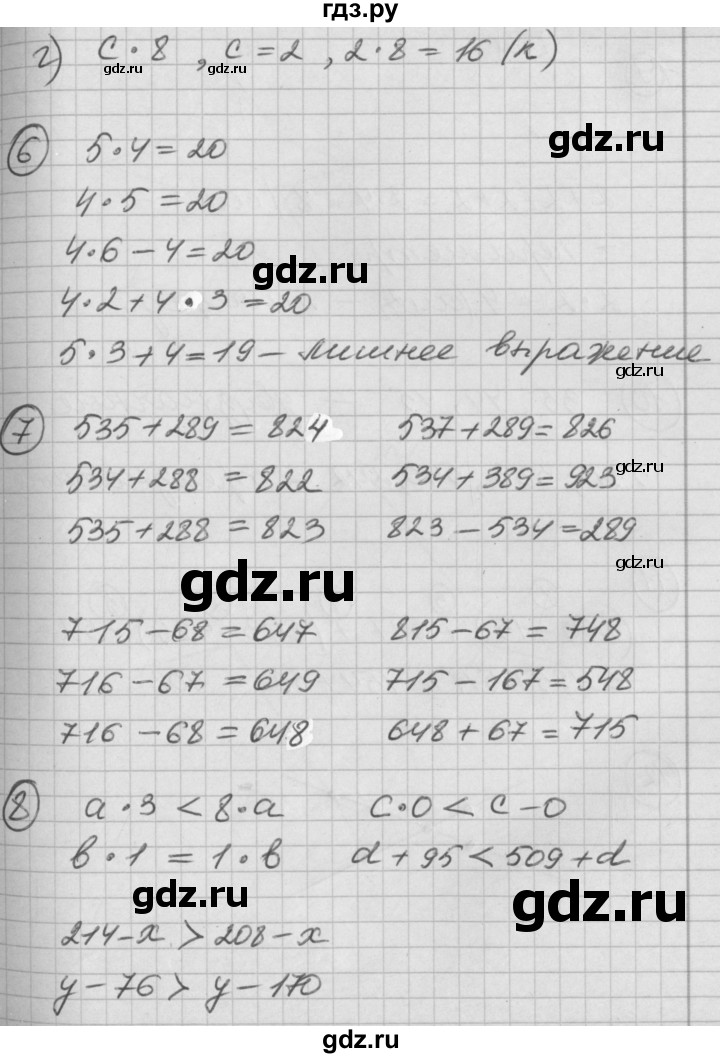 гдз.ру
г) c·8 , c=2 , 2·8=16 (к)
gdz.ru gdz.ru gdz.ru
6 5·4=20
gdz.ru
4·5=20
4·6-4=20
gdz.ru
4·2+4·3=20
5·3+4=19 - лишнее выражение
gdz.ru
7 535+289=824 537+289=826
534+288=822 534+389=923
gdz.ru
535+288=823 823-534=289
gdz.ru
gdz.ru
715-68=647 815-67=748
716-67=649 715-167=548
716-68=648 648+67=715
8 a·3<8·a c·0<c-0
b·1=1·b d+95<509+d
gdz.ru gdz.ru
214-x>208-x
y-76>y-170
gdz.ru